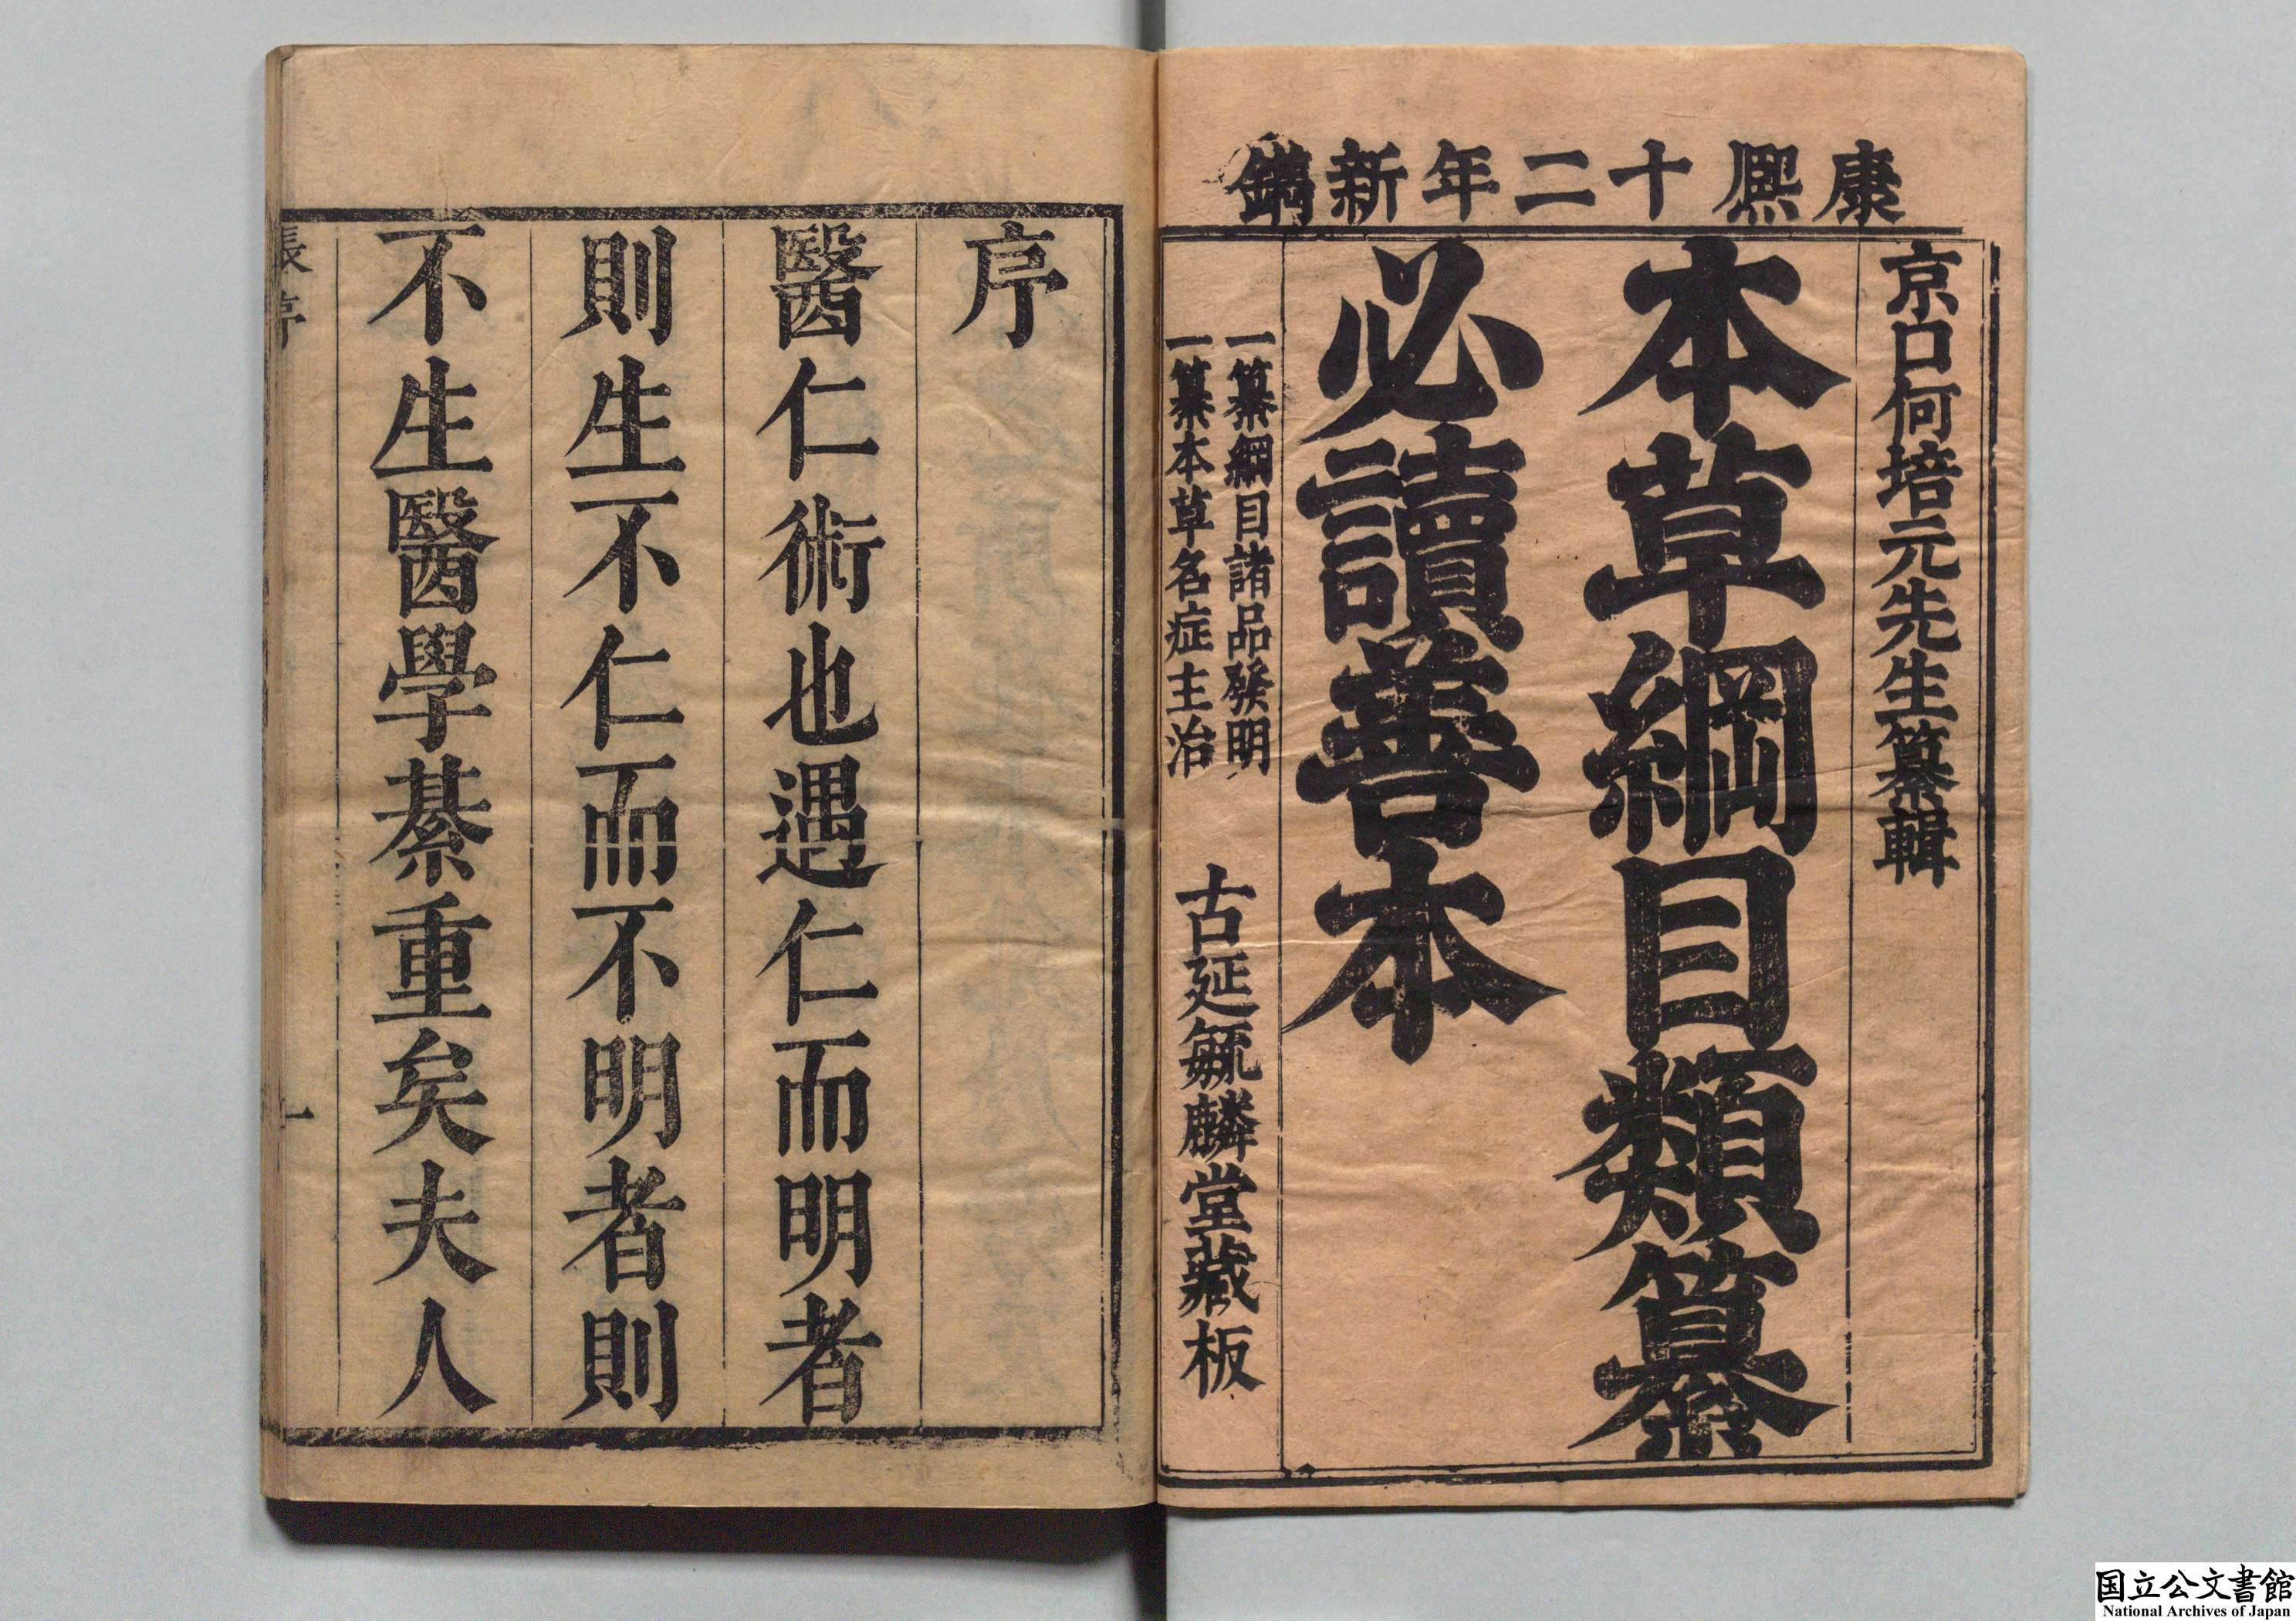 康熙十二年新鐫
京口何培元先生纂輯
本草綱目類纂
必讀善本
一纂綱目諸品發明
一纂本草名症主治
古延毓麟堂藏板
序
醫仁術也遇仁而明者
則生不仁而不明者則
不生醫學綦重矣夫人
張序
一
国立公文書館
National Archives of Japan